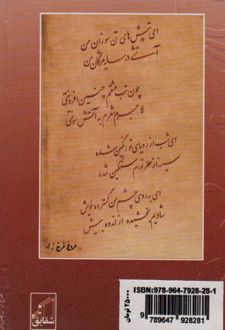 ای تپش های تن سوزان من
آتشی در سایه مژگان من
چون تب عشقم چنین افروختی
لاجرم شعرم به آتش سوختی
ای شب از رویای تو رنگین شده
سینه از عطر توام سنگین شده
ای به روی چشم من گسترده خویش
شادیم بخشیده از اندوه بیش
فروغ فرخ زاد
ISBN:978-964-7928-28-1
9 789647 928281
شقایق